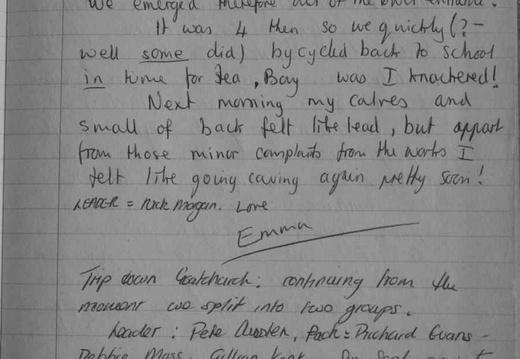 We emerged therefore out of the lower entrance.
It was 4 then so we quickly (? -
well some did) bycycled back to school
in time for tea, Boy was I knackered!
Next morning my calves and
small of back felt like lead, but appart
from those minor complaints from the works I
felt like going caving again pretty soon!
LEADER = Nick Morgan. Love
Emma
Trip down Goatchurch: continuing from the
moment we split into two groups.
Leader: Pete Austen, Pack = Richard Evans -
Debbie Moss, Gillian Kent